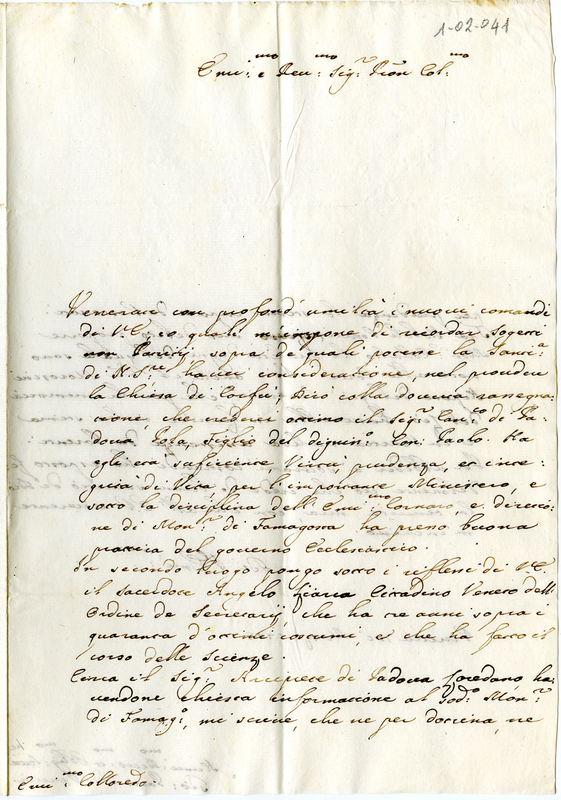 1-02-041
Emi:mo e Reu:mo Sig:r Pron Col:mo
Venerai con profond' umiltà i nuovi comandi
di V:E:, co quali m'impone di ricordar sogetti
non Patritij sopra de quali potesse la Santi:tà
di N. S:re haver consideratione, nel proveder
la Chiesa di Corfù; Dirò colla dovuta rassegna:
tione, che vedrei ottimo il Sig:r Can:co di Pa:
dova Tola, figlio del digniss:o Con: Paolo. Ha
egli età sufficiente, Virtù, prudenza, et inte:
grità di Vita, per l'importante Ministero, e
sotto la disciplina dell' Emi:mo Cornaro, e, diretio:
ne di Mon:r di Famagosta ha preso buona
prattica del governo Ecclesiastico.
In secondo luogo pongo sotto i riflessi di VE
il sacerdote Angelo Cittadino Veneto dell'
Ordine de Secretarij, che ha tre anni sopra i
quaranta d'ottimi costumi, e che ha fatto il
corso delle scienze
Circa il Sig:r Arciprete di Padova Loredano ha:
vendone chiesta informatione al sod:o Mon:r
di Famag:a, mi scrive, che ne per dottrina, ne
Emi:mo Colloredo: